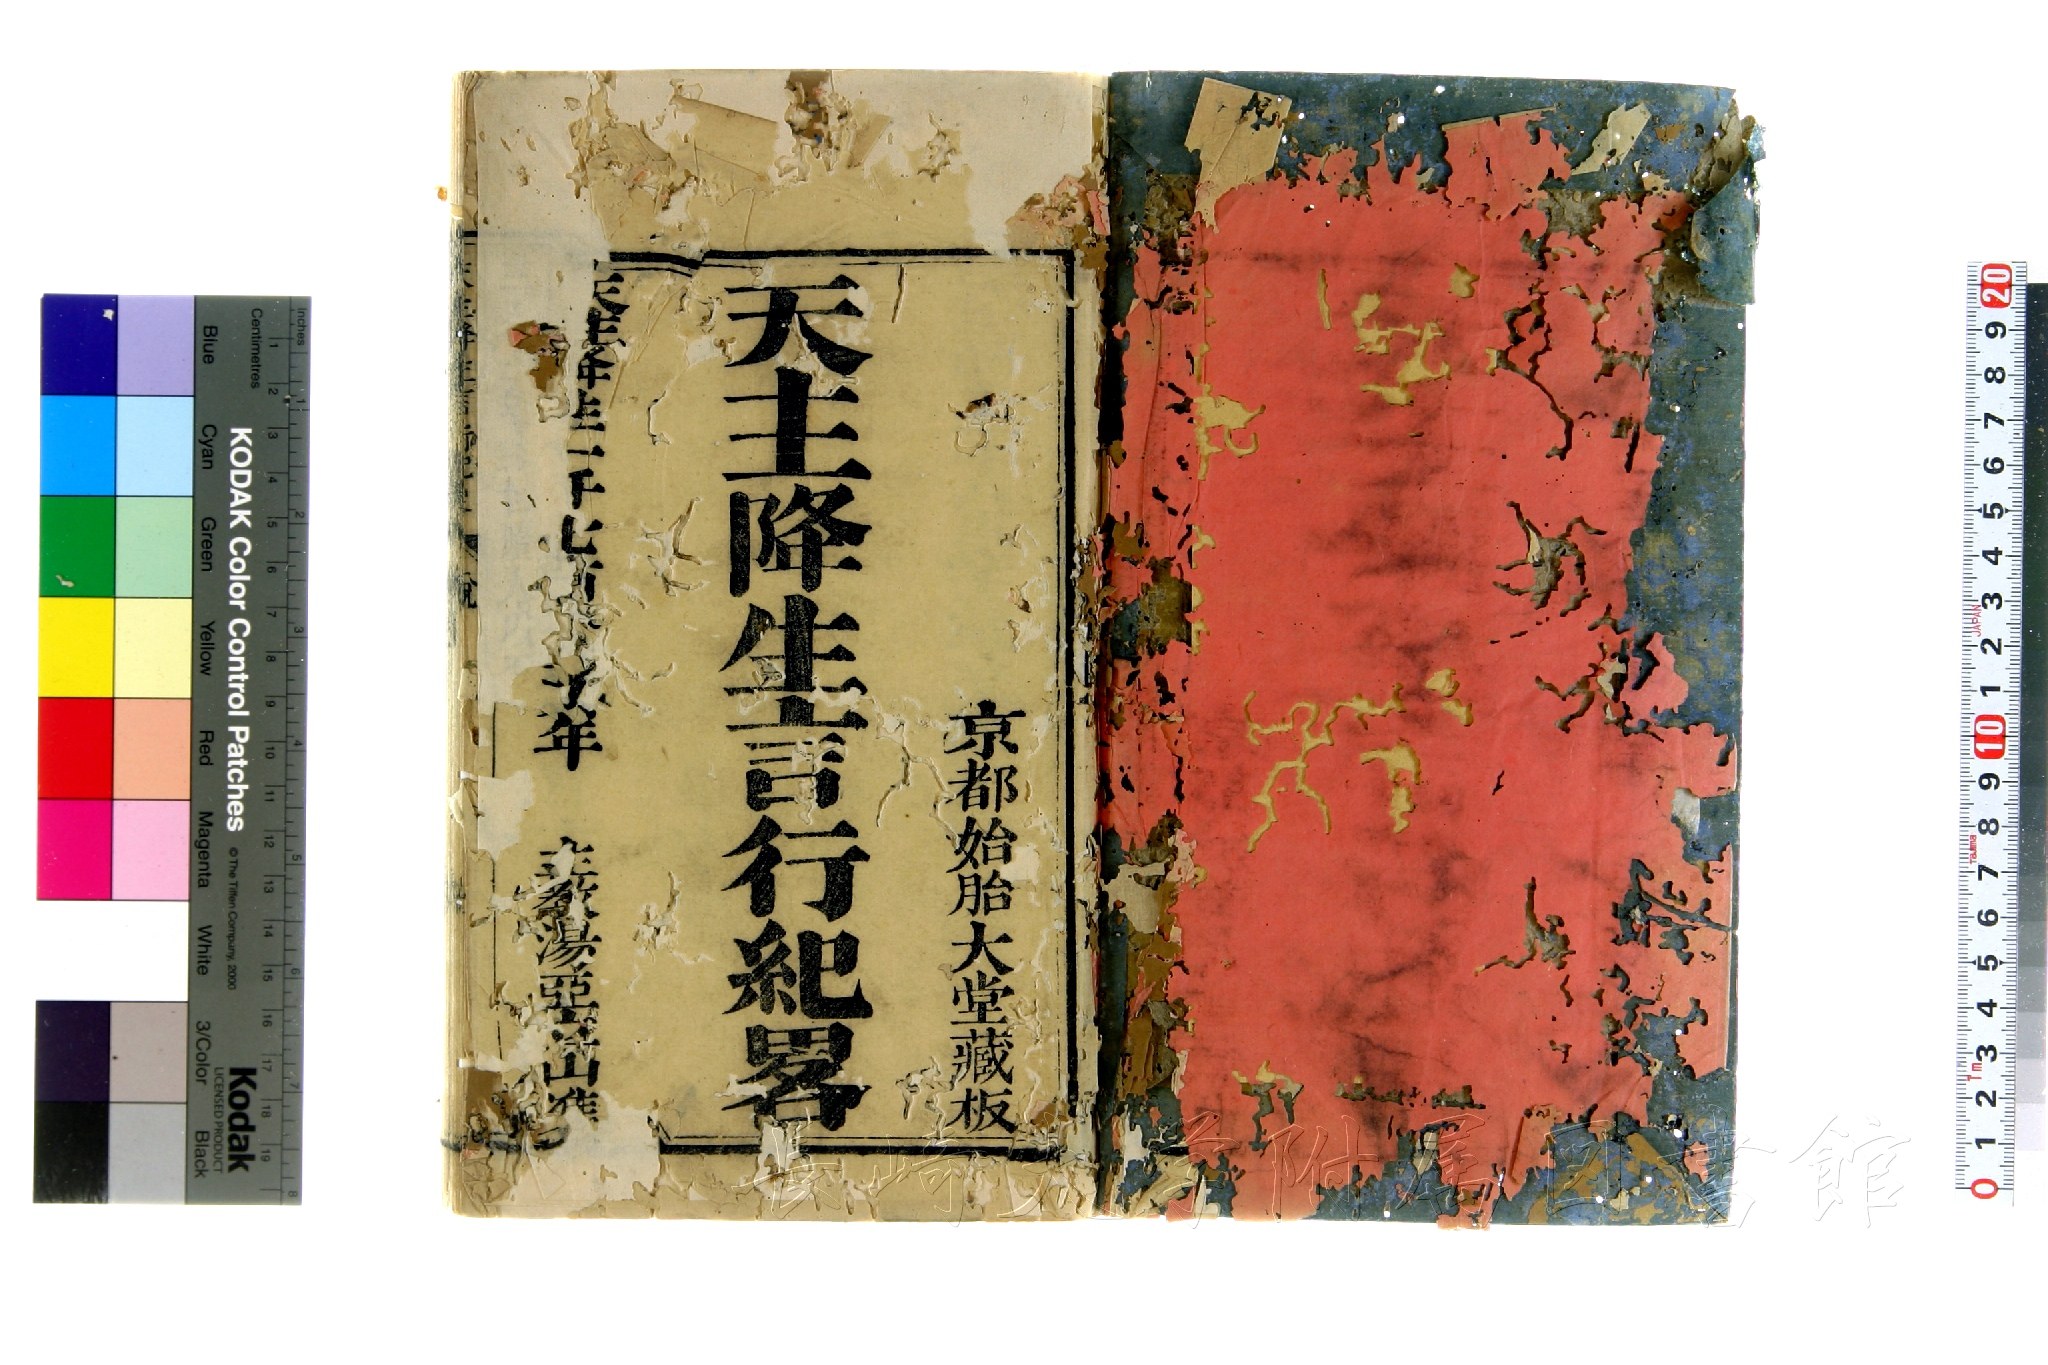 京都始胎大堂藏板
天主降生言行紀畧
天主降生一千七百 年
主教湯亞 山准
KODAK Color Control Patches
© The Tiffen Company, 2000
Kodak
LICENSED PRODUCT
Inches
Centimetres
Blue
Cyan
Green
Yellow
Red
Magenta
White
3/Color
Black
1 2 3 4 5 6 7 8 9 10 11 12 13 14 15 16 17 18 19
1 2 3 4 5 6 7 8
20 9 8 7 6 5 4 3 2 1 10 9 8 7 6 5 4 3 2 1 0
JAPAN
Tajima
長崎大学附属図書館